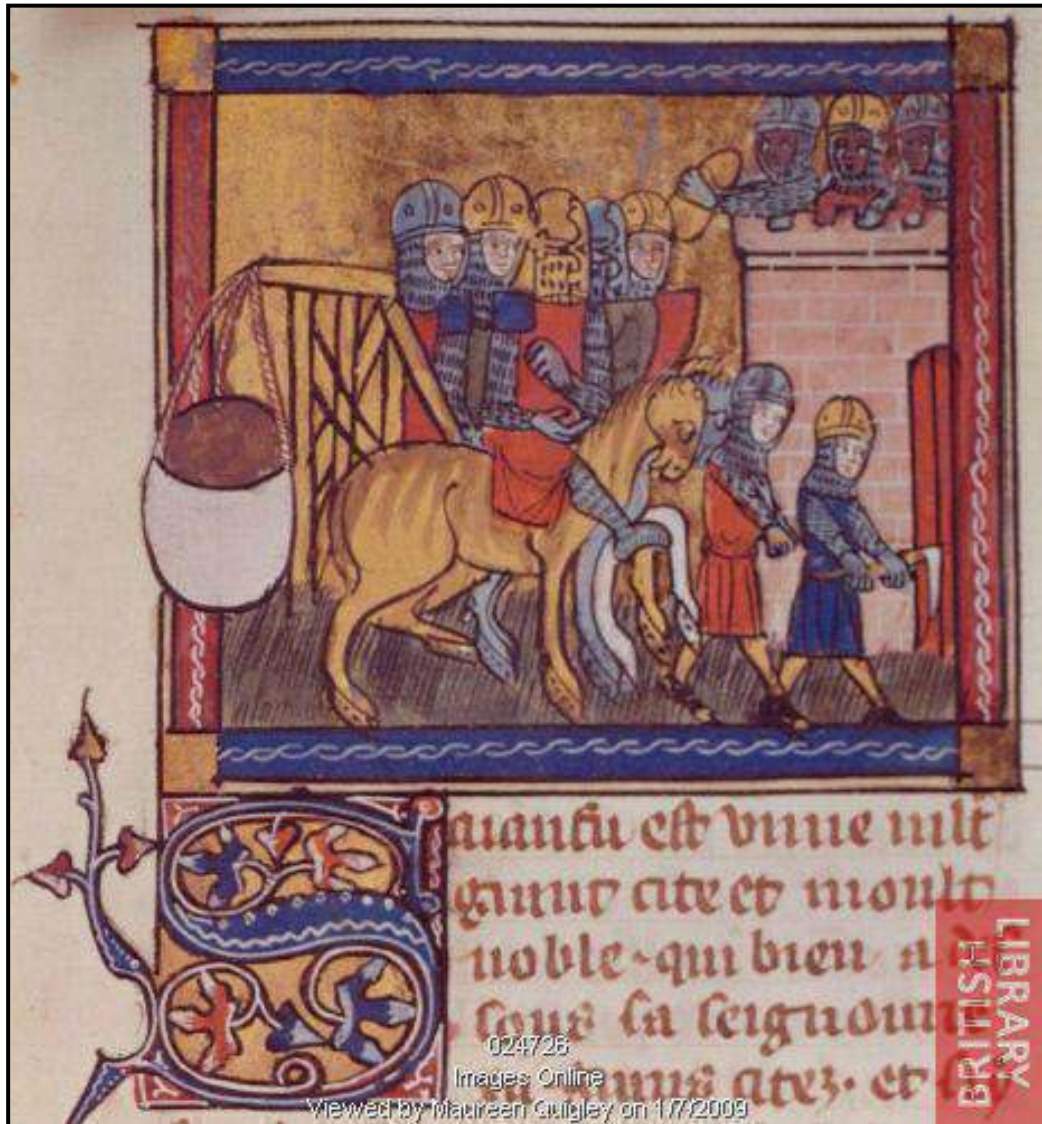 Saianfu est vnne mlt
grant cite et moult
noble · qui bien a
souz sa seignour
citez · et
BRITISH
LIBRARY
024726
Images Online
Viewed by Maureen Quigley on 1/7/2009